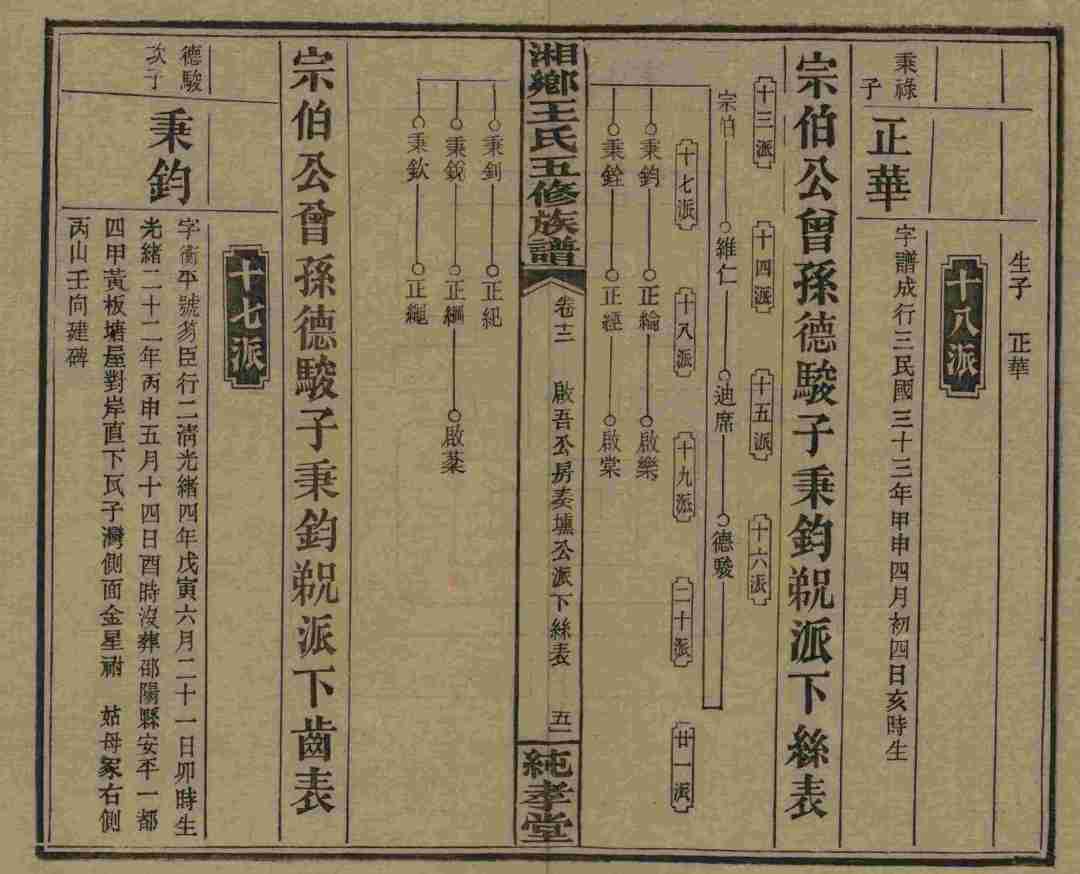 生子　正華
十八派
秉祿
子
正華
字譜成行三民國三十三年甲申四月初四日亥時生
宗伯公曾孫德駿子秉鈞
派下絲表
十三派
十四派
十五派
十六派
宗伯
維仁
迪席
德駿
十七派
十八派
十九派
二十派
廿一派
秉鈞
正綸
啟樂
秉銓
正經
啟棠
湘鄉王氏五修族譜
卷十二
啟吾公房
公派下絲表
五一
純孝堂
秉釗
正紀
秉銳
正綱
啟棻
秉欽
正繩
宗伯公曾孫德駿子秉鈞
派下齒表
十七派
德駿
次子
秉鈞
字衡平號
臣行二清光緒四年戊寅六月二十一日卯時生
光緒二十二年丙申五月十四日酉時沒葬邵陽縣安平一都
四甲黃板塘屋對岸直下瓦子灣側面金星
姑母冢右側
丙山壬向建碑